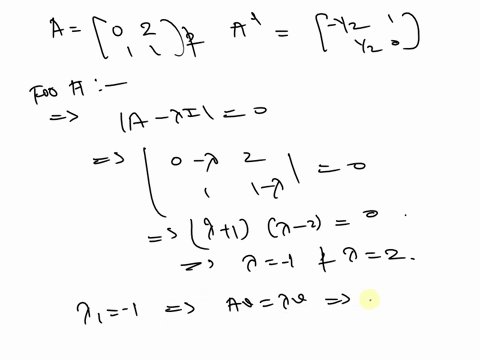 A = [0 2
1 1] & A⁻¹ = [-1/2 1
1/2 0]
For A :—
=> |A - λI| = 0
=> | 0-λ 2
1 1-λ | = 0
=> (λ+1) (λ-2) = 0 .
=> λ = -1 & λ = 2.
λ₁ = -1 => Av = λv =>